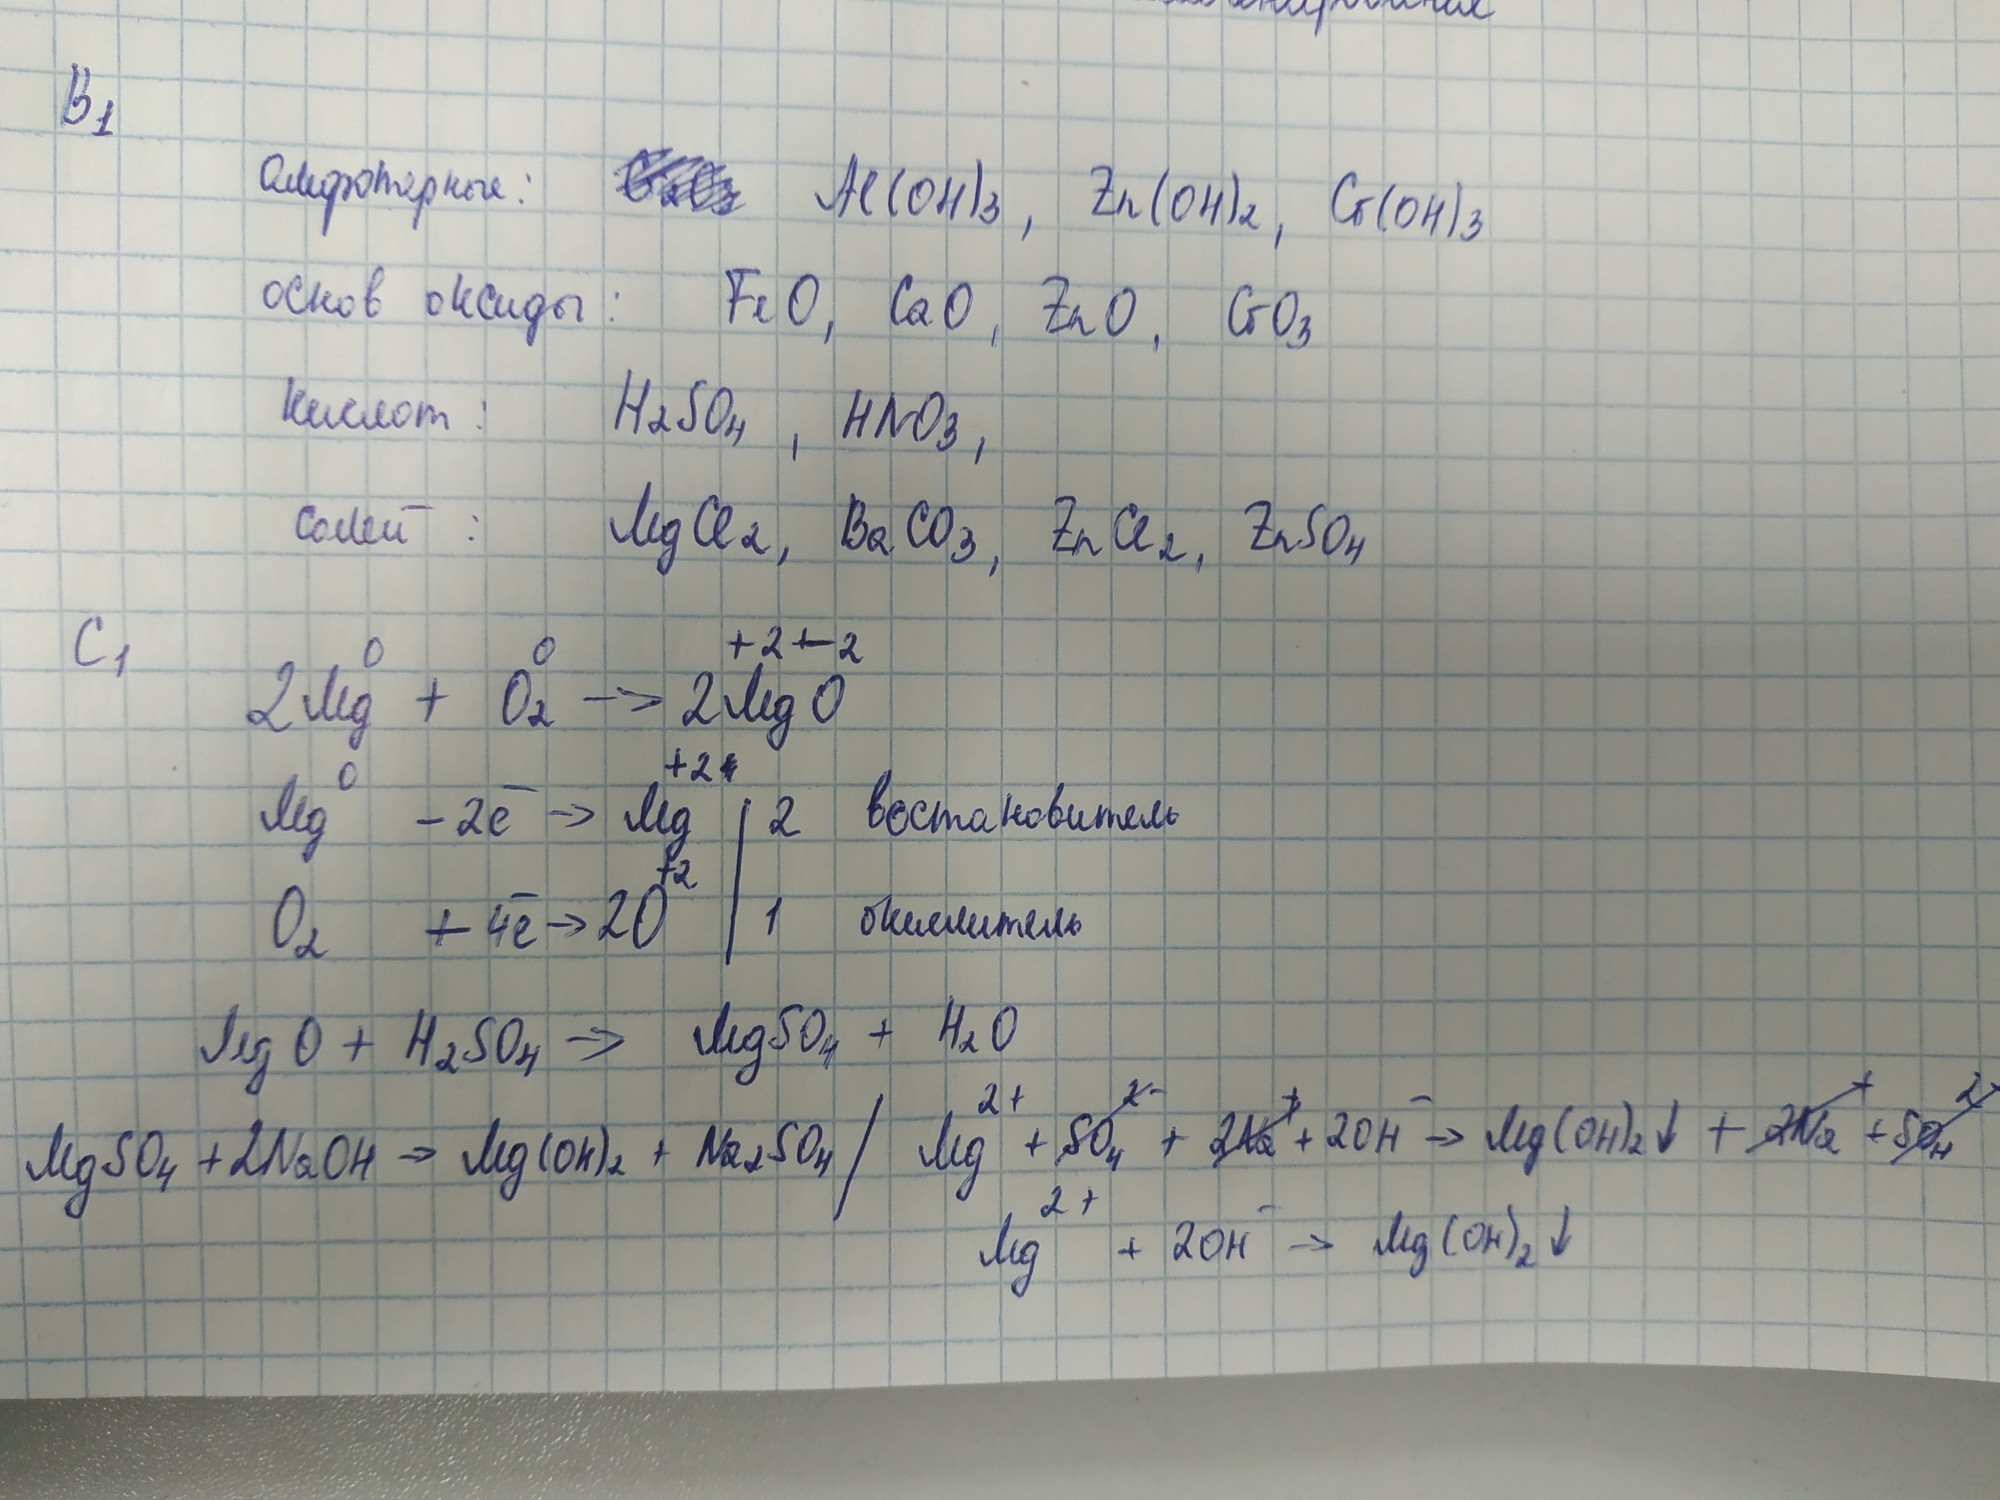 B1
Амфотерные: Al(OH)3, Zn(OH)2, Cr(OH)3
основ оксиды: FeO, CaO, ZnO, CrO3
кислот: H2SO4, HNO3,
солей: MgCl2, BaCO3, ZnCl2, ZnSO4
C1
0 0 +2 -2
2Mg + O2 -> 2MgO
Mg0 - 2e- -> Mg+2 | 2 востановитель
O2 + 4e- -> 2O+2 | 1 окислитель
MgO + H2SO4 -> MgSO4 + H2O
MgSO4 + 2NaOH -> Mg(OH)2 + Na2SO4 / Mg2+ + SO42- + 2Na+ + 2OH- -> Mg(OH)2↓ + 2Na+ + SO42-
Mg2+ + 2OH- -> Mg(OH)2↓